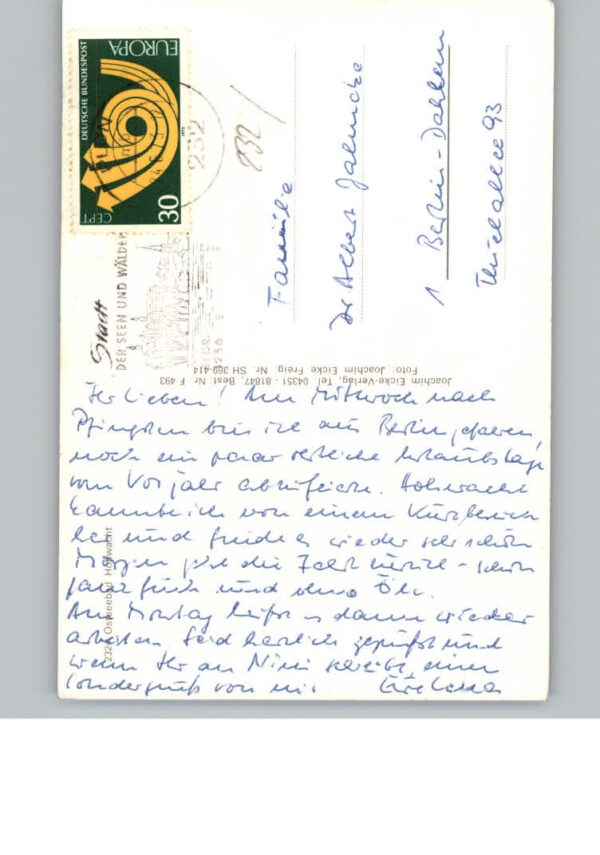 EUROPA
DEUTSCHE BUNDESPOST
CEPT
30
232
232/
Stadt
DER SEEN UND WÄLDER
Familie
Dr Albert Jahncke
1 Berlin-Dahlem
Thielallee 93
Joachim Eicke-Verlag, Tel. 04351 - 81847, Best. Nr. F 493
Foto: Joachim Eicke Freig. Nr. SH 369-414
2324 Ostseebad Hohwacht
Ihr Lieben! Am Mittwoch nach
Pfingsten bin ich aus Berlin gefahren,
noch ein paar restliche Urlaubstage
vom Vorjahr abzufeiern. Hohwacht
kannte ich von einem Kurzbesuch
her und finde es wieder sehr schön
Morgen geht die Fahrt zurück - schön
ganz früh und ohne
Am Montag heißt es dann wieder
arbeiten. Seid herzlich gegrüßt und
wenn Ihr an Nini schreibt, einen
Sondergruß von mir Eure